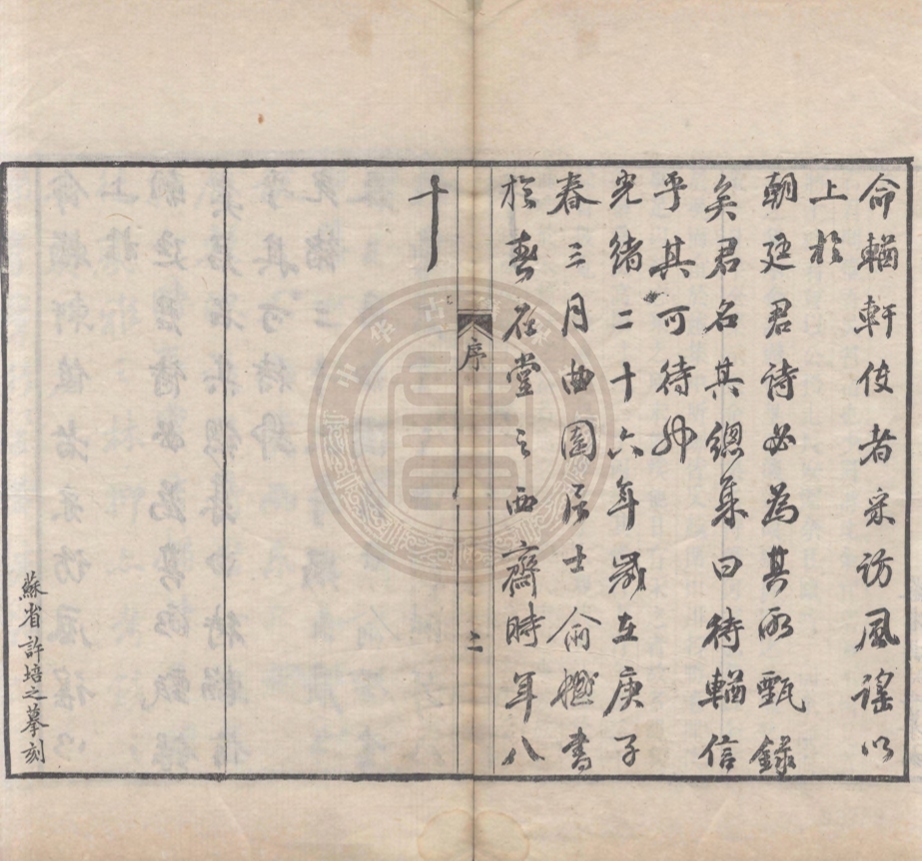 命輶軒使者采訪風謠以
上於
朝廷君詩必為其所甄錄
矣君名其總集曰待輶信
乎其可待
光緒二十六年歲在庚子
春三月曲園居士俞樾書
於春在堂之西齋時年八
序
二
十
蘇省許培之摹刻